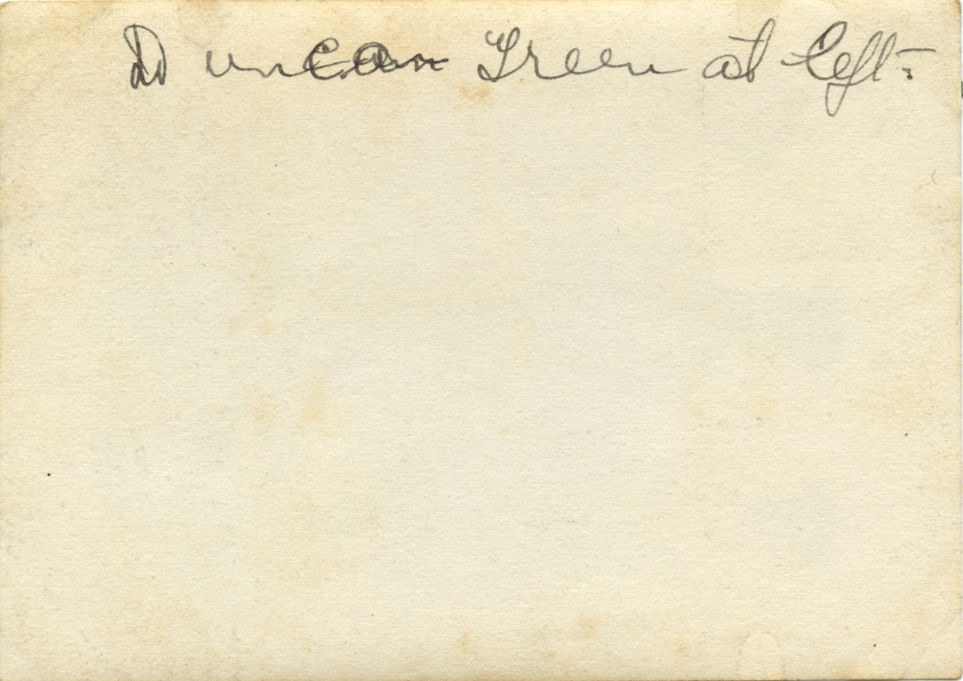 Duncan Green at left-